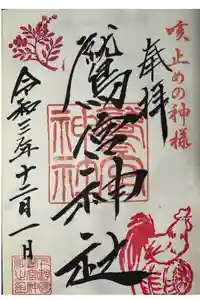 咳止めの神様
奉拝
鷲宮神社
令和三年十二月一日